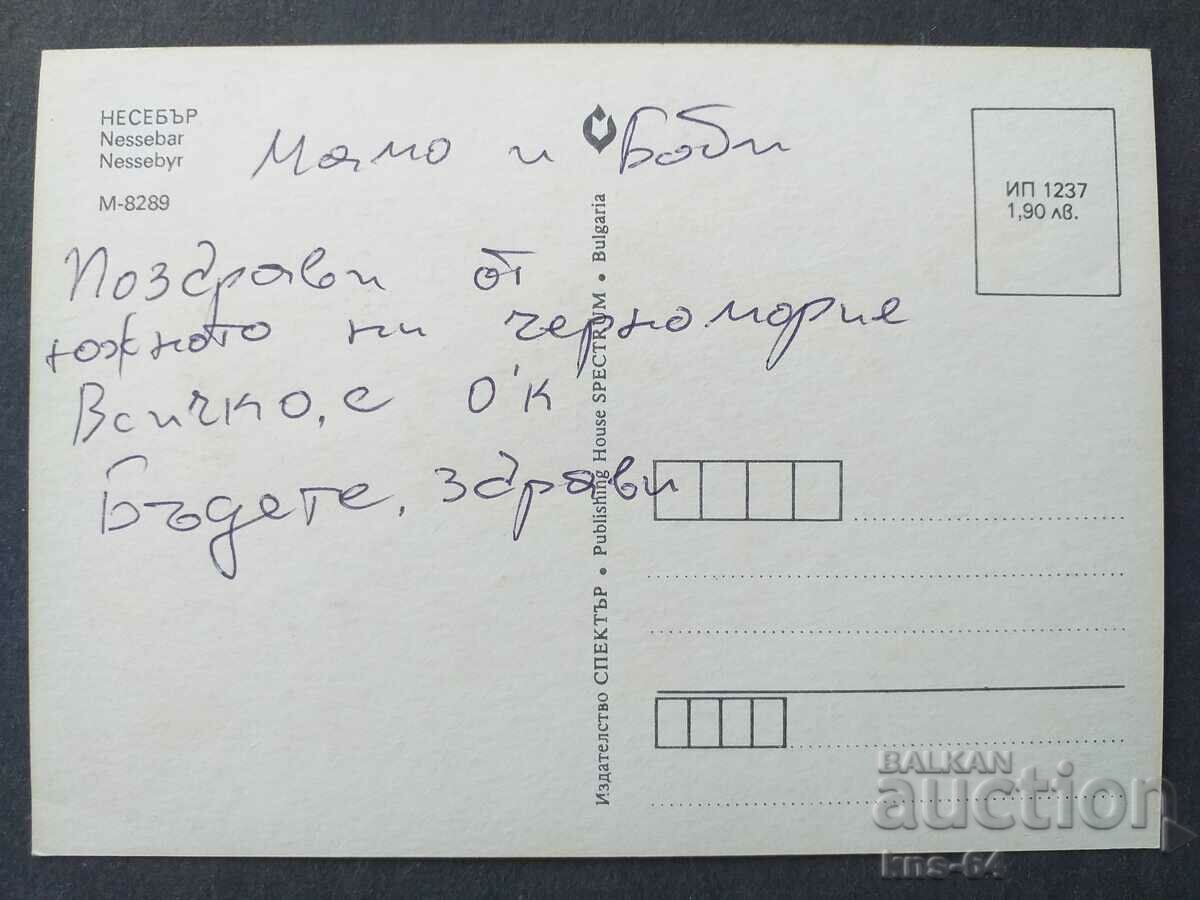 НЕСЕБЪР
Nessebar
Nessebyr
М-8289
Мамо и Боби
Поздрави от
южното ни черноморие
Всичко, е О'К
Бъдете, здрави
Издателство СПЕКТЪР • Publishing House SPECTRUM • Bulgaria
ИП 1237
1,90 лв.
BALKAN
auction
kns-64